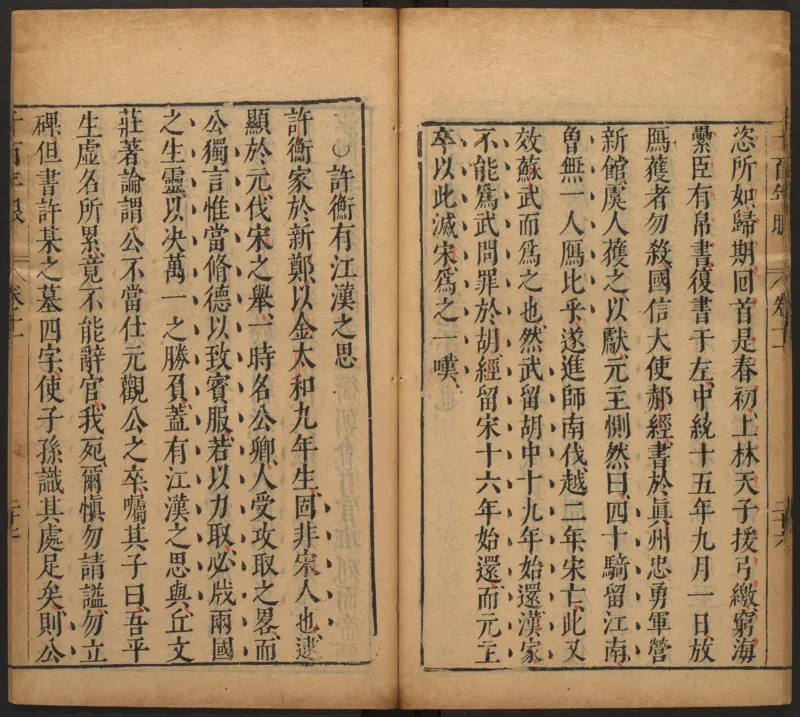 恣所如歸期回首是春初上林天子援弓繳窮海
纍臣有帛書復書于左中統十五年九月一日放
鴈獲者勿殺國信大使郝經書於眞州忠勇軍營
新館虞人獲之以獻元主惻然曰四十騎留江南
曾無一人鴈比乎遂進師南伐越二年宋亡此又
效蘇武而爲之也然武留胡中十九年始還漢家
不能爲武問罪於胡經留宋十六年始還而元主
卒以此滅宋爲之一嘆
○許衡有江漢之思
許衡家於新鄭以金太和九年生固非宋人也逮
顯於元伐宋之舉一時名公卿人受攻取之畧而
公獨言惟當脩德以致賓服若以力取必戕兩國
之生靈以决萬一之勝負蓋有江漢之思與丘文
莊著論謂公不當仕元觀公之卒囑其子曰吾平
生虛名所累竟不能辭官我死爾愼勿請謚勿立
碑但書許某之墓四字使子孫識其處足矣則公
千百年眼 卷十一